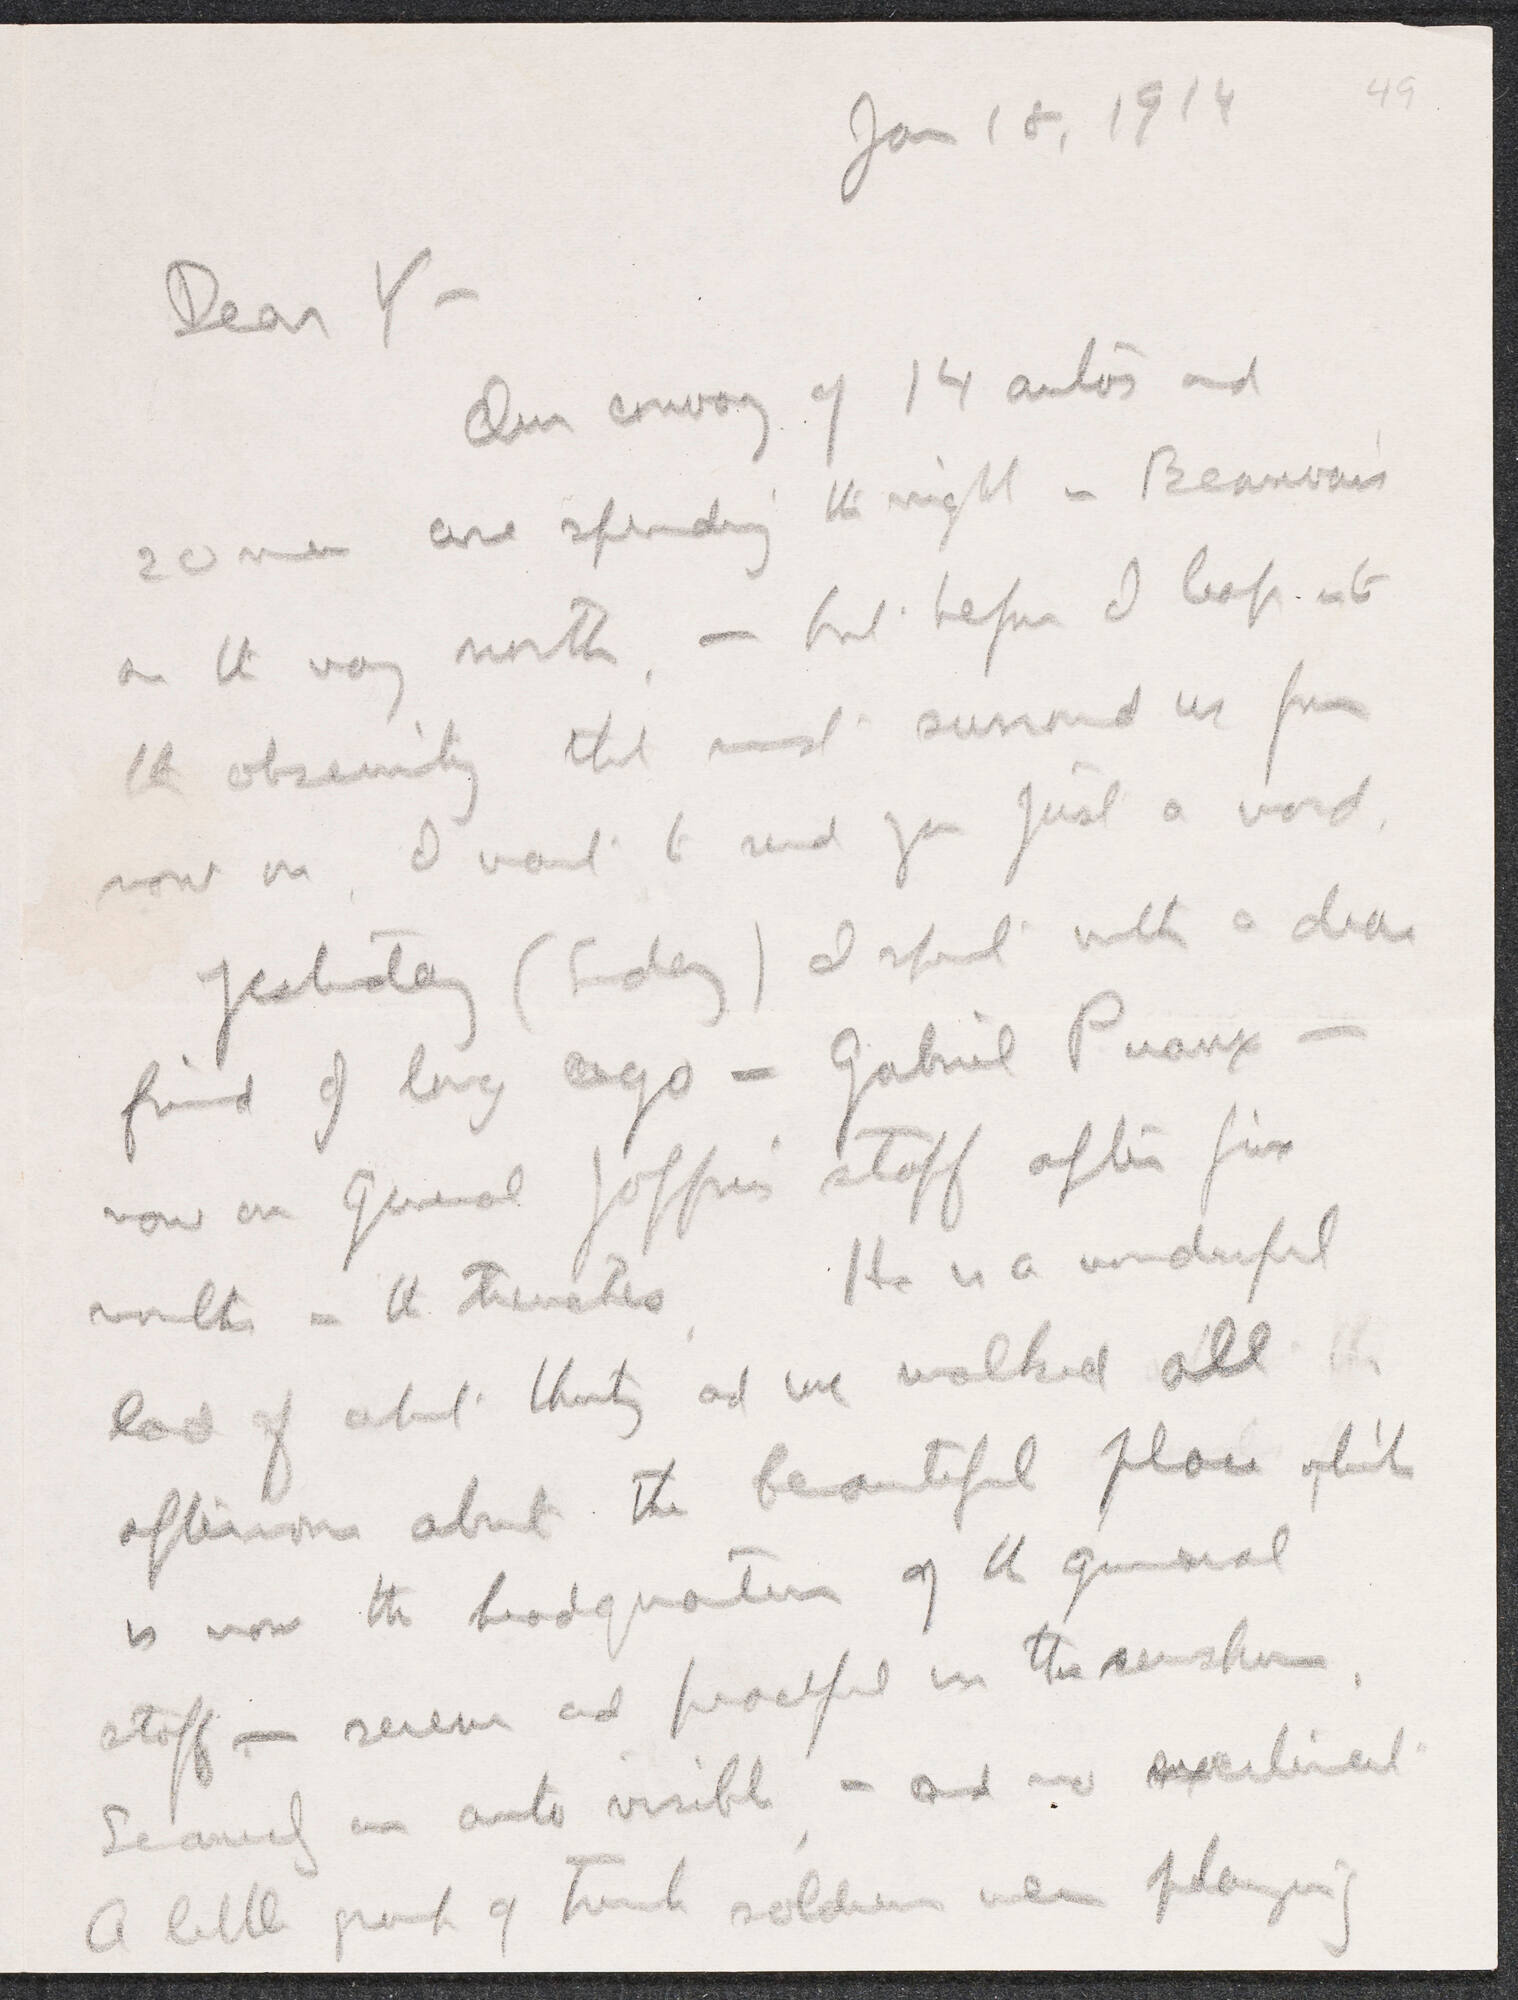 49
Jan 18, 1914
Dear Y —
Our convoy of 14 autos and
20 men are spending the night in Beauvais
on the way north, — but before I leap into
the obscurity that must surround us from
now on, I want to send you just a word.
Yesterday (Sunday) I spent with a dear
friend of long ago — Gabriel Puaux —
now on General Joffre's staff after five
months in the trenches. He is a wonderful
lad of about thirty, and we walked all the
afternoon about the beautiful place which
is now the headquarters of the general
staff, — serene and peaceful in the sunshine,
Scarcely an auto visible, — and no excitement
A little group of French soldiers were playing